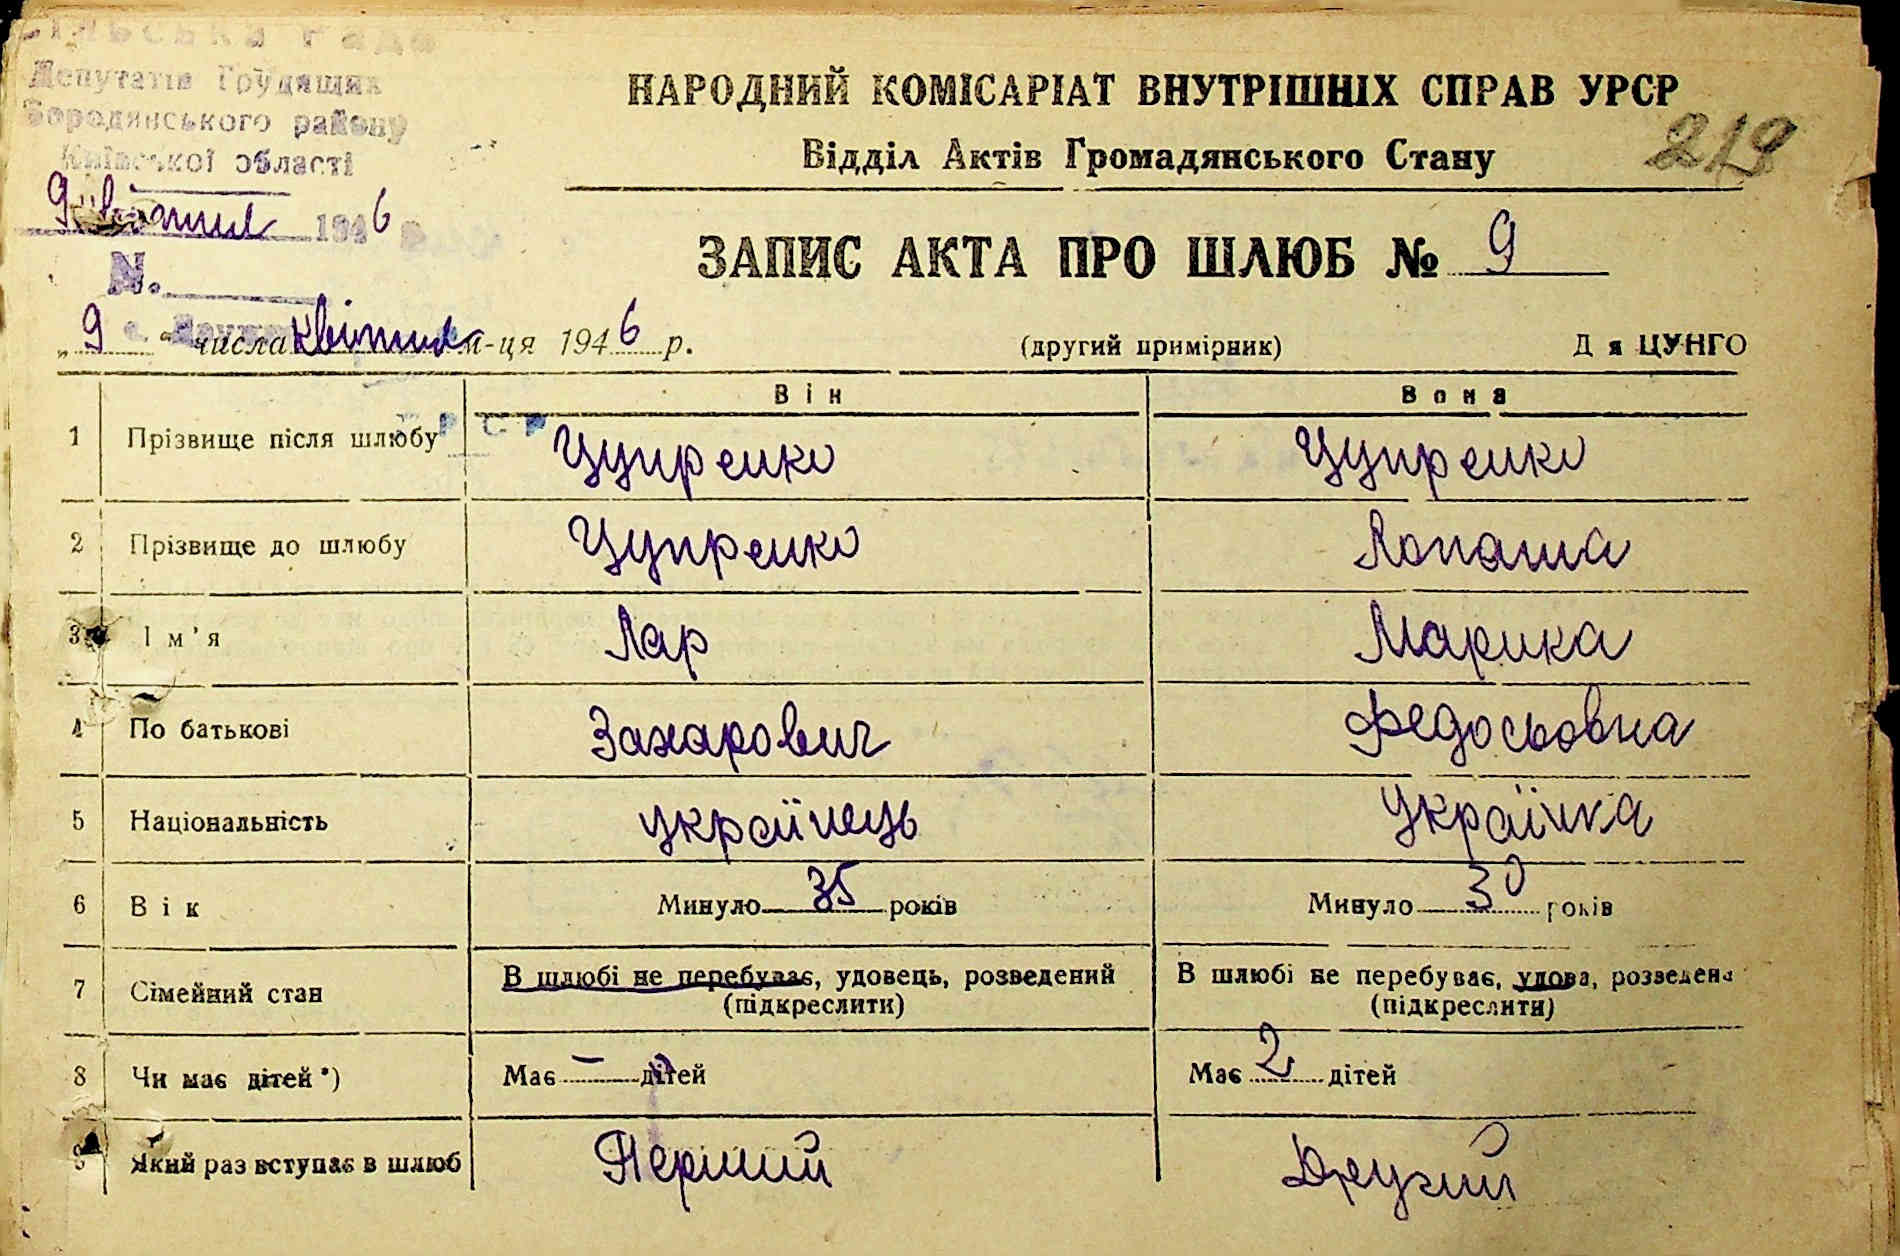 сільська рада
Депутатів Трудящих
Бородянського району
Київської області
9 квітня 1946
N.
НАРОДНИЙ КОМІСАРІАТ ВНУТРІШНІХ СПРАВ УРСР
Відділ Актів Громадянського Стану
219
ЗАПИС АКТА ПРО ШЛЮБ № 9
„9“ числа квітня м-ця 1946 р. (другий примірник) Для ЦУНГО
УРСР
Він Вона
1 Прізвище після шлюбу Цупренко Цупренко
2 Прізвище до шлюбу Цупренко Лопата
3 Ім’я Лар Марика
4 По батькові Захарович Федосьовна
5 Національність українець Українка
6 Вік Минуло 35 років Минуло 30 років
7 Сімейний стан В шлюбі не перебуває, удовець, розведений В шлюбі не перебуває, удова, розведена
(підкреслити) (підкреслити)
8 Чи має дітей*) Має — дітей Має 2 дітей
9 Який раз вступає в шлюб Перший Другий